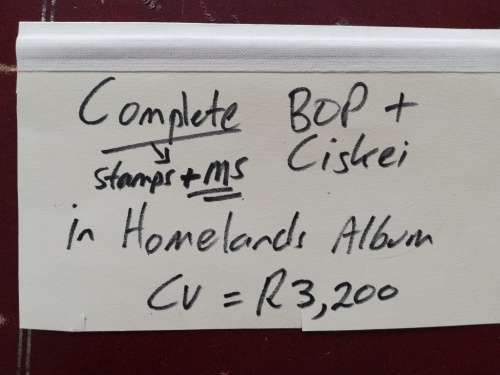 Complete BOP +
stamps + MS Ciskei
in Homelands Album
CV = R3,200